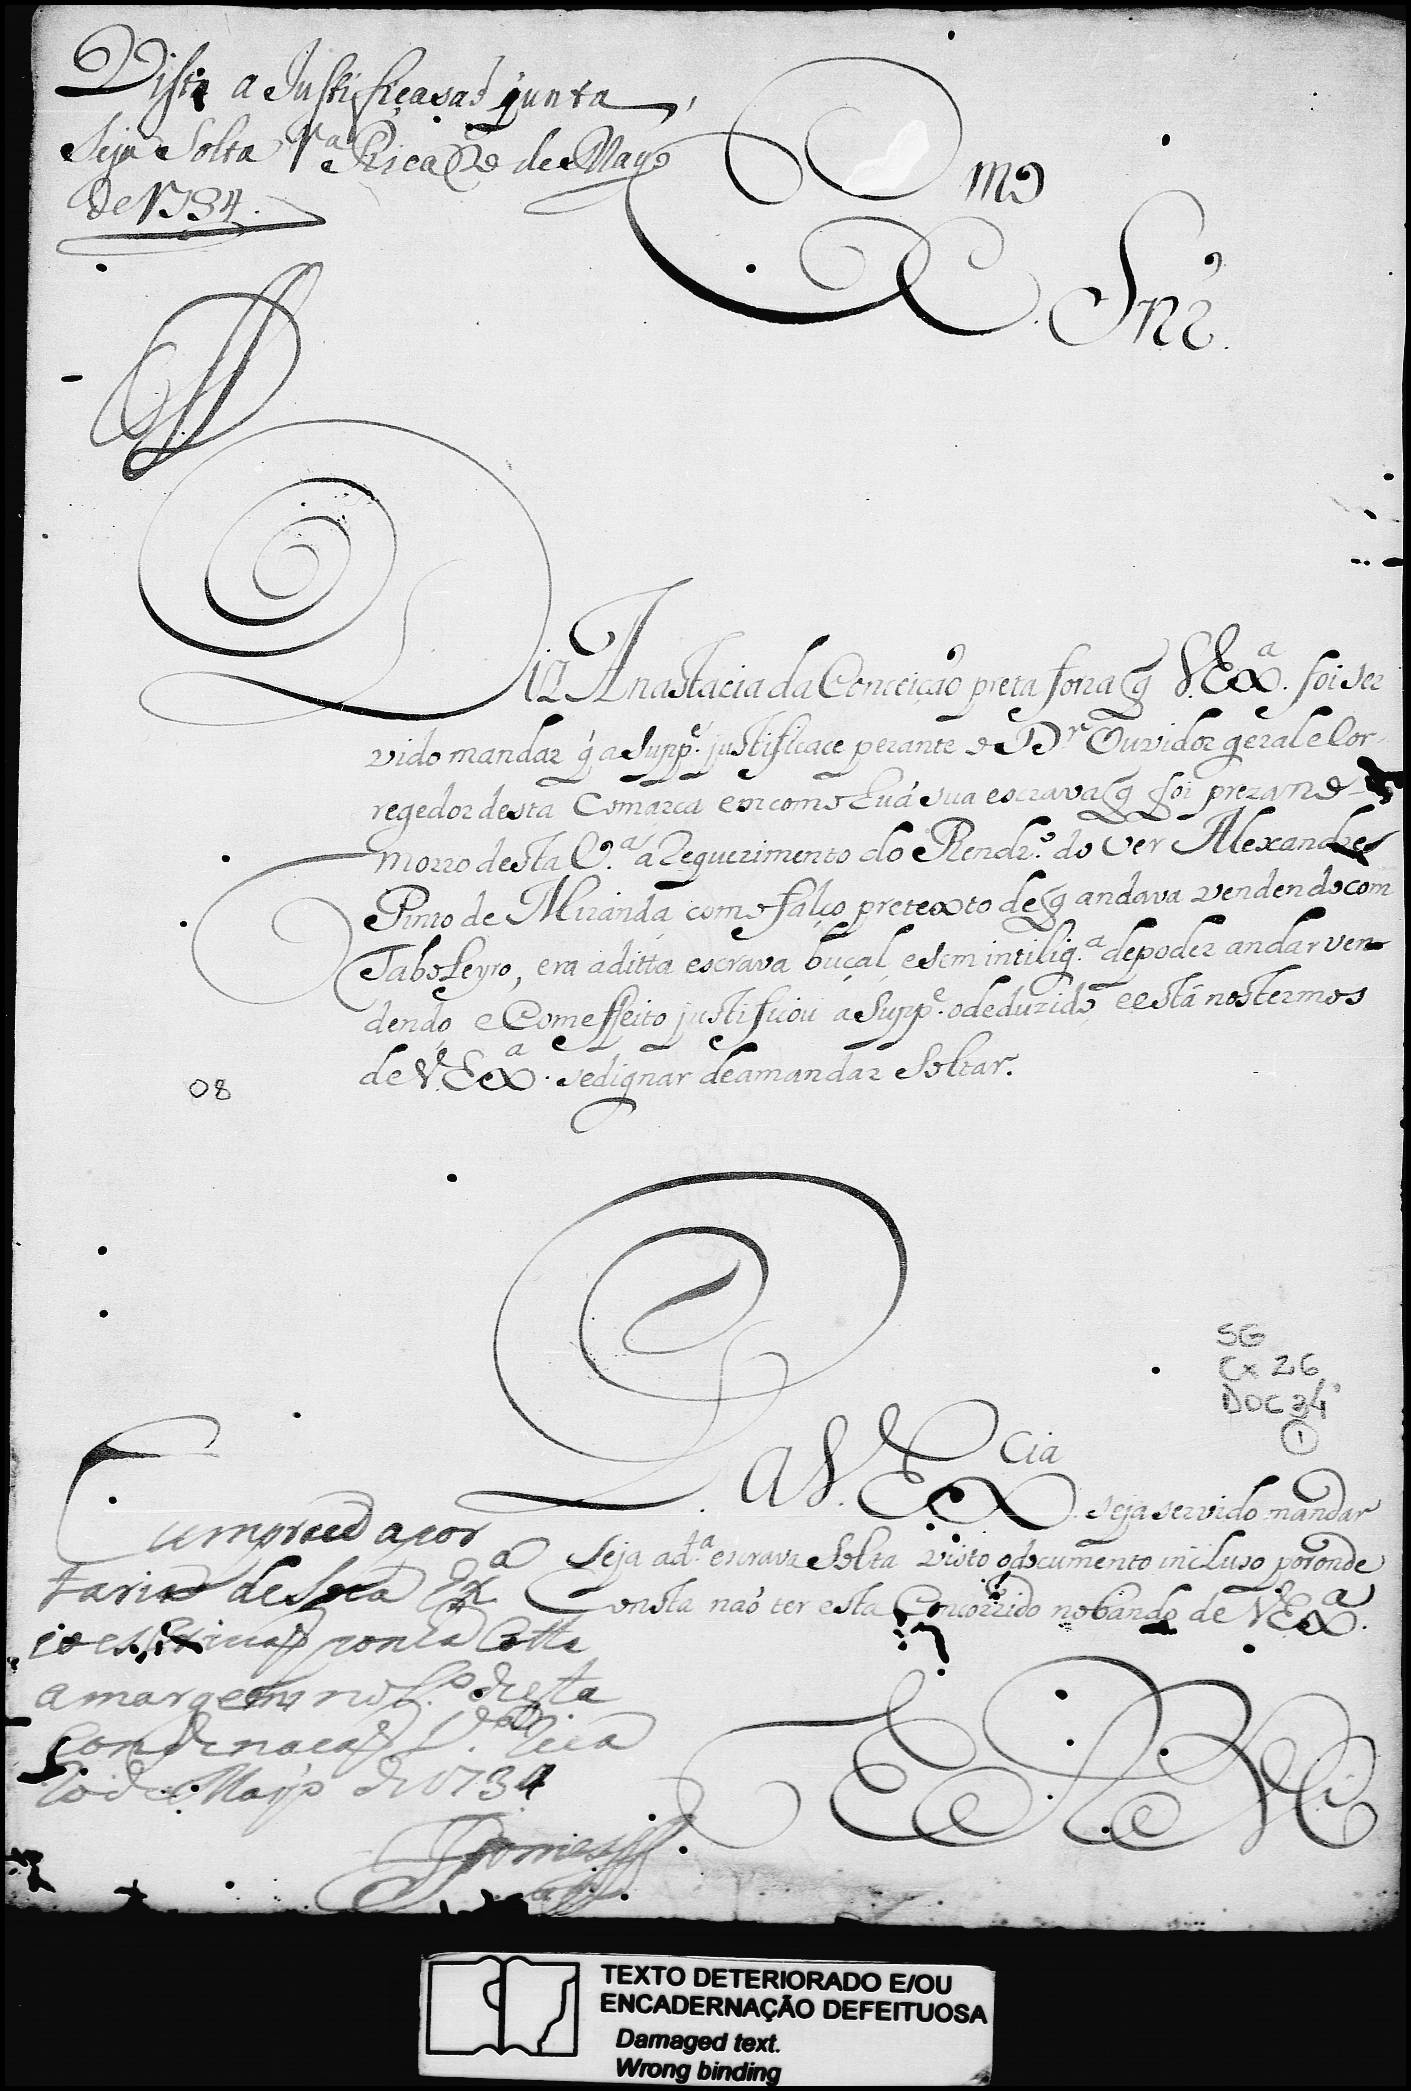 Vista a Justificasaõ junta
Seja Solta V.ª Rica de Mayo
de 1734.
Exmo
Snr.
Diz Anastacia da Conceição preta forra q̃ V.Exª. foi ser
vido mandar q̃ a Supp.e justificace perante o D.r Ouvidor geral e Cor-
regedor desta Comarca em como huá sua escrava q̃ foi preza no
morro desta V.ª a Requerimento do Rendr.º do ver Alexandre
Pinto de Miranda como falço pretexto de q̃ andava vendendo com
Taboleyro, era a ditta escrava buçal, e sem intilig.ª de poder andar ven
dendo e Com effeito justificou a Supp.e o deduzido, e está nos termos
de V.Exª. se dignar de a mandar Soltar.
08
SG
Cx 26
DOC 34
1
P. a V. Excia seja servido mandar
Seja a d.ª escrava Solta visto o documento incluso por onde
Consta naõ ter esta Concorrido no bando de V.Exª.
E R M.ce
Cumprace a por
taria de Sua Exª
e o escrivaõ ponha Cotta
a margem no L.º desta
Condenacaõ V.ª Rica
de Mayo de 1734
Gomes
TEXTO DETERIORADO E/OU
ENCADERNAÇÃO DEFEITUOSA
Damaged text.
Wrong binding